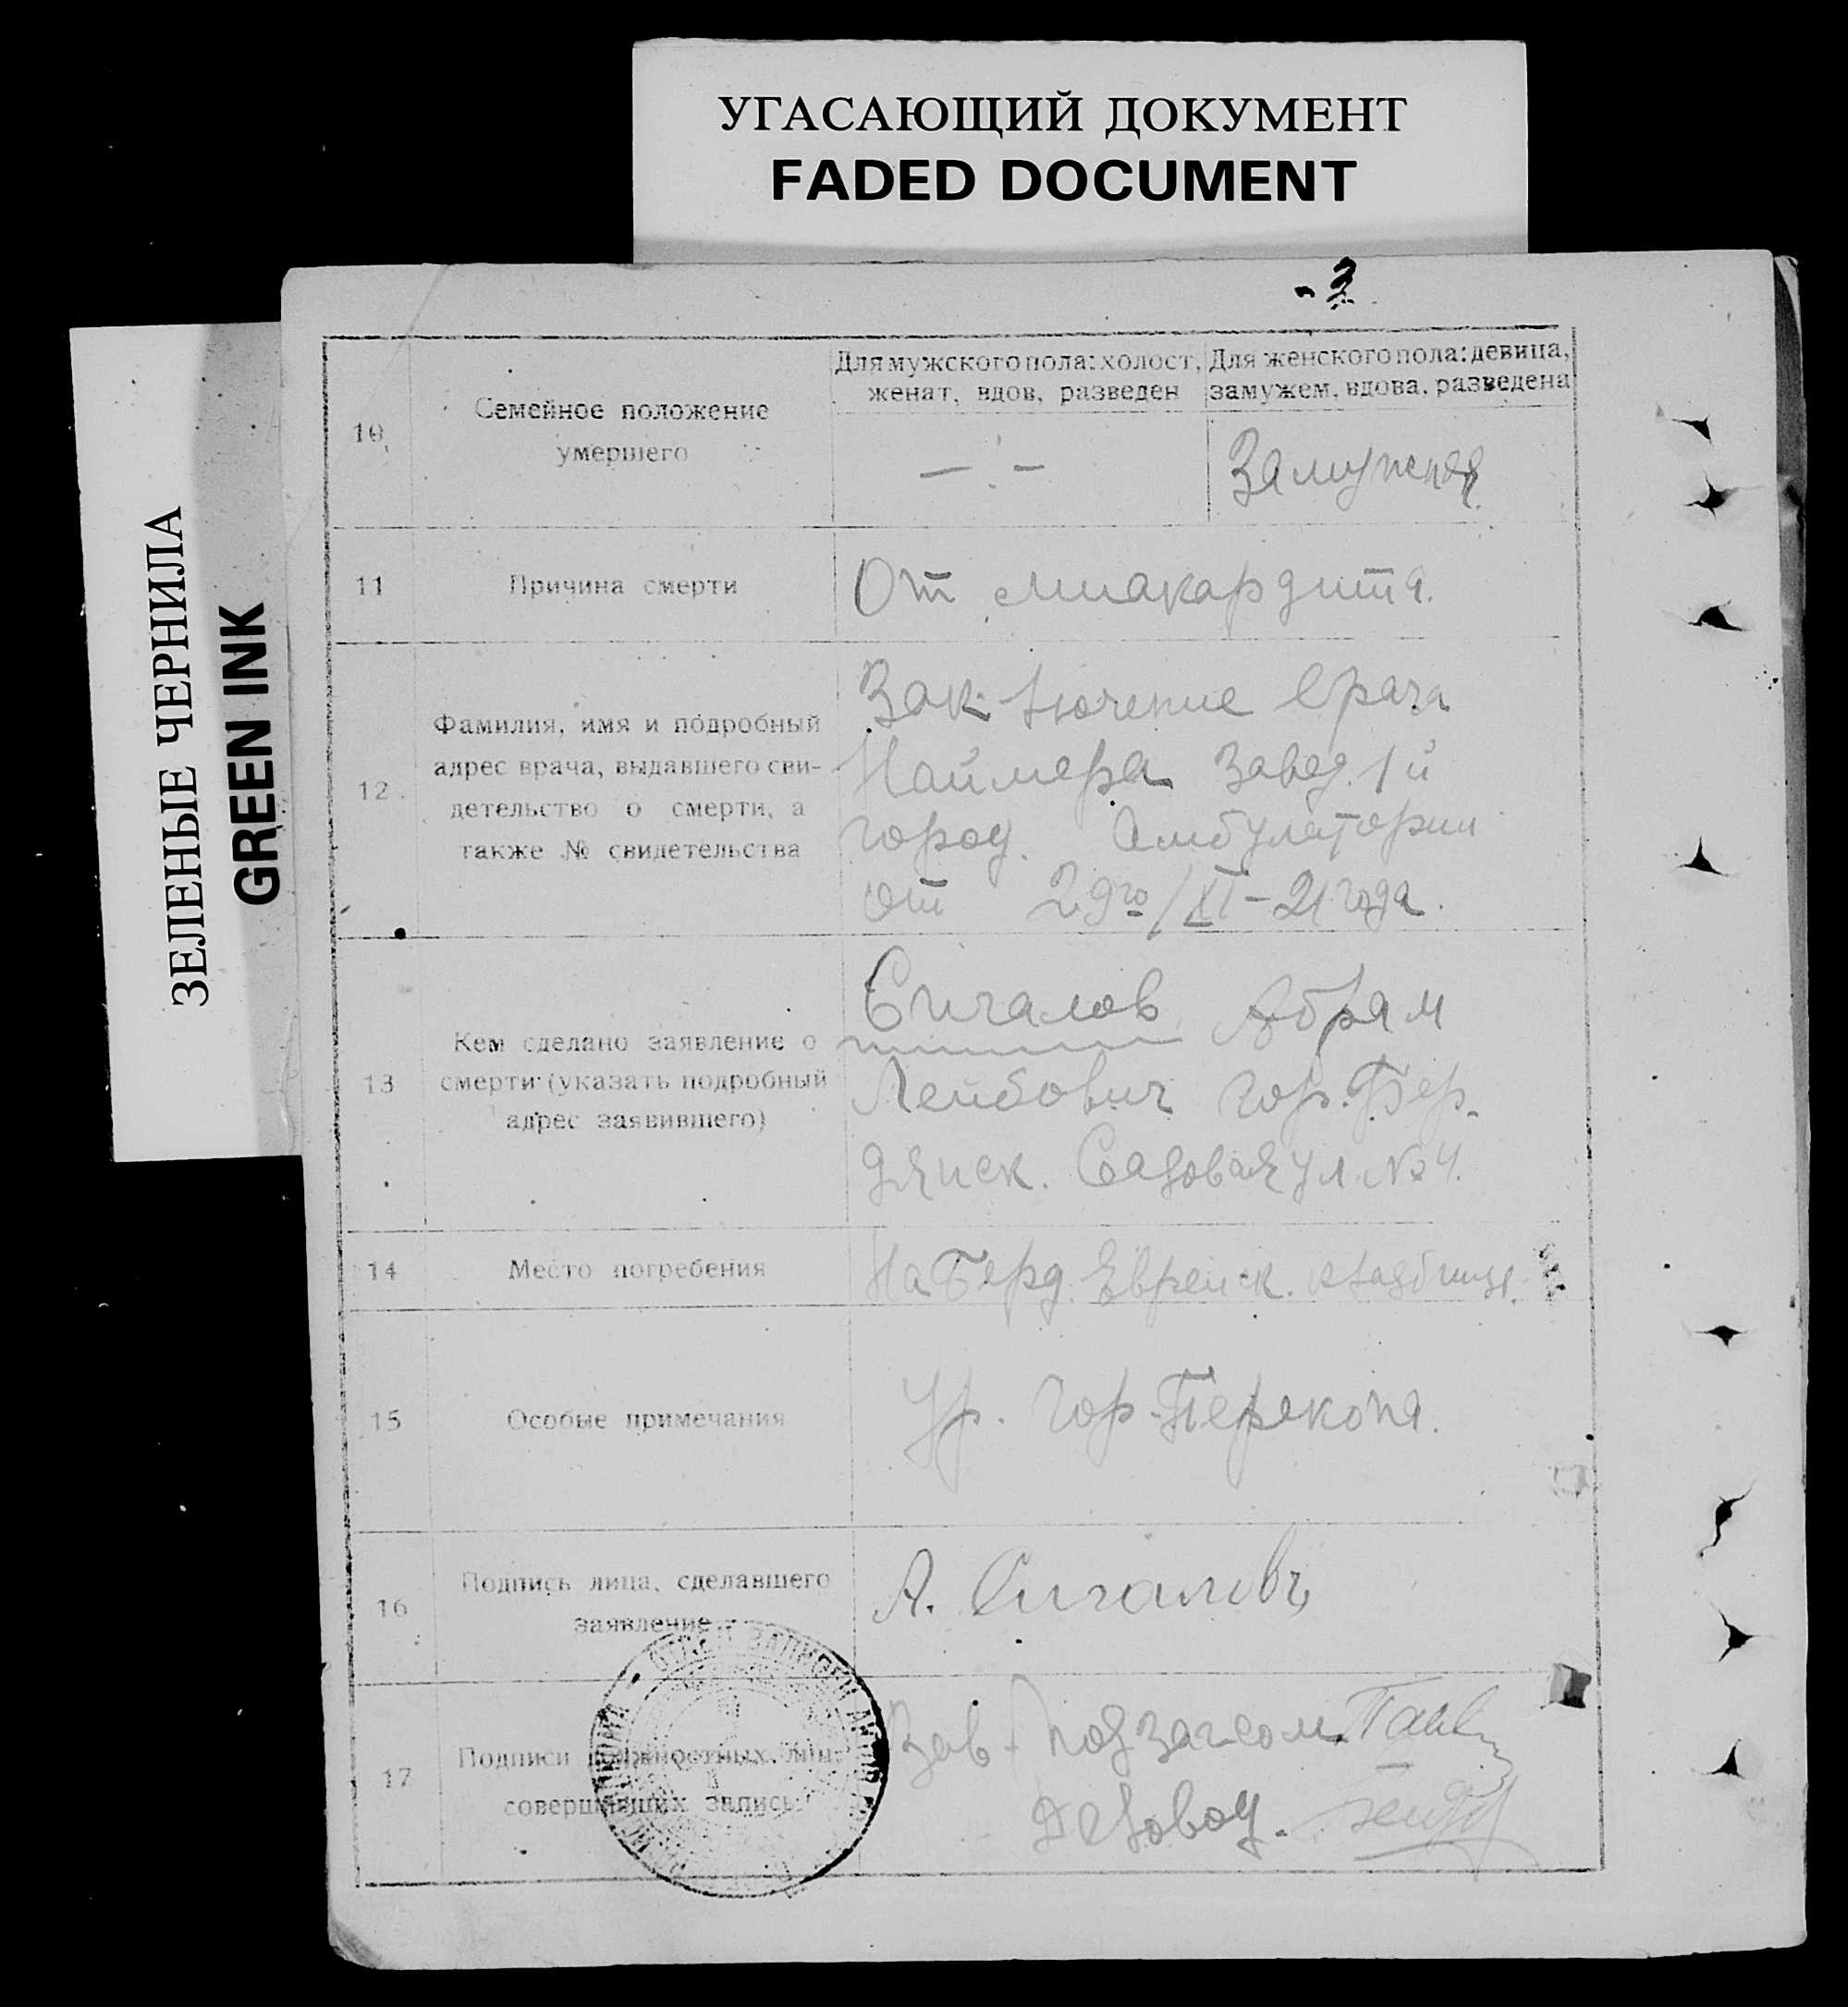 УГАСАЮЩИЙ ДОКУМЕНТ
FADED DOCUMENT
ЗЕЛЕНЫЕ ЧЕРНИЛА
GREEN INK
10
Семейное положение
умершего
Для мужского пола: холост,
женат, вдов, разведен
Для женского пола: девица,
замужем, вдова, разведена
— . —
Замужняя
11
Причина смерти
От миакардита.
12
Фамилия, имя и подробный
адрес врача, выдавшего сви-
детельство о смерти, а
также № свидетельства
Заключение врача
Наймера Завед. 1й
город. Амбулатории
от 29го/XI-21 года.
13
Кем сделано заявление о
смерти (указать подробный
адрес заявившего)
Сигалов Абрам
Лейбович гор. Бер-
дянск. Садовая ул. № 4.
14
Место погребения
На Берд. Еврейск. кладбище.
15
Особые примечания
Ур. гор. Перекопа.
16
Подпись лица, сделавшего
заявление
А. Сигаловъ
17
Подписи должностных лиц,
совершивших запись
Зав. подзагсом
Деловод.